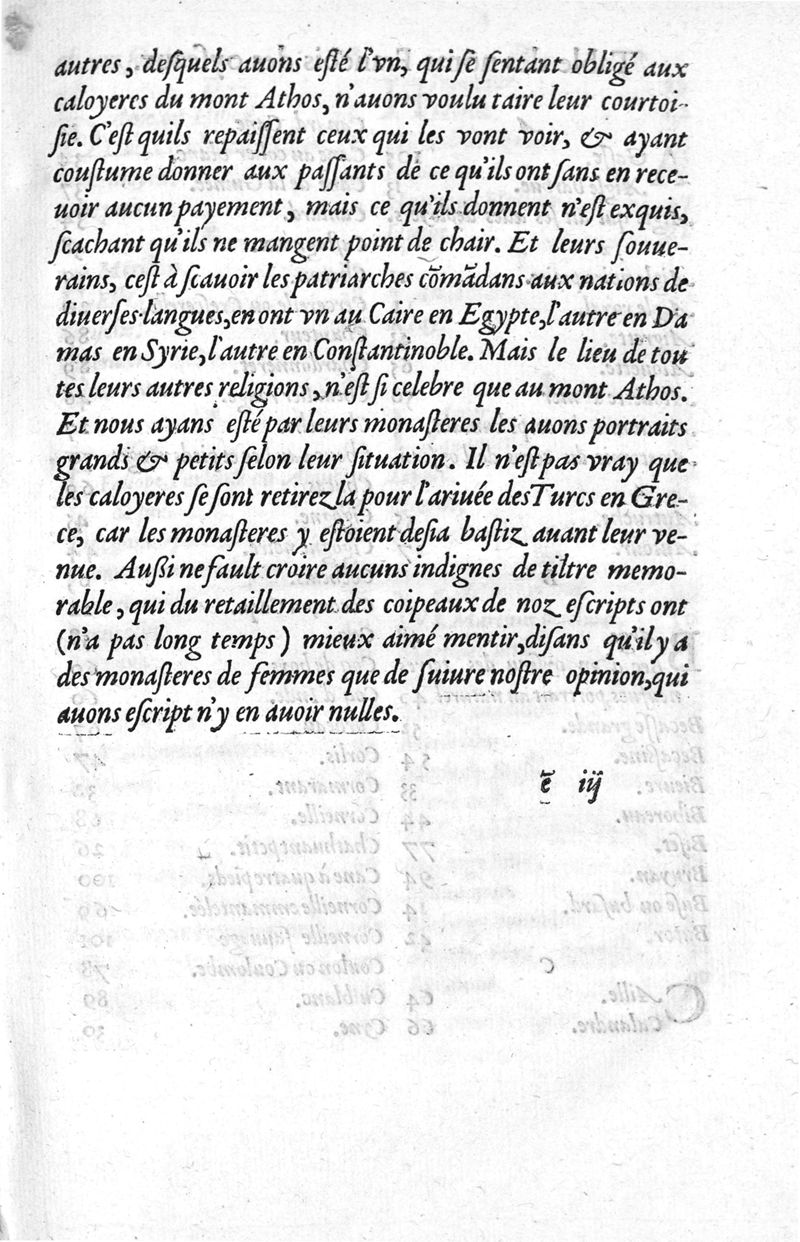 autres, deſquels auons eſté l'vn, qui ſe ſentant obligé aux
caloyeres du mont Athos, n'auons voulu taire leur courtoi-
ſie. C'eſt quils repaiſſent ceux qui les vont voir, & ayant
couſtume donner aux paſſants de ce qu'ils ont ſans en rece-
uoir aucun payement, mais ce qu'ils donnent n'eſt exquis,
ſcachant qu'ils ne mangent point de chair. Et leurs ſouue-
rains, ceſt à ſcauoir les patriarches cōmādans aux nations de
diuerſes langues, en ont vn au Caire en Egypte, l'autre en Da
mas en Syrie, l'autre en Conſtantinoble. Mais le lieu de tou
tes leurs autres religions, n'eſt ſi celebre que au mont Athos.
Et nous ayans eſté par leurs monaſteres les auons portraits
grands & petits ſelon leur ſituation. Il n'eſt pas vray que
les caloyeres ſe ſont retirez la pour l'ariuée des Turcs en Gre-
ce, car les monaſteres y eſtoient deſia baſtiz auant leur ve-
nue. Auſsi ne fault croire aucuns indignes de tiltre memo-
rable, qui du retaillement des coipeaux de noz eſcripts ont
(n'a pas long temps) mieux aimé mentir, diſans qu'il y a
des monaſteres de femmes que de ſuiure noſtre opinion, qui
auons eſcript n'y en auoir nulles.
ē iij